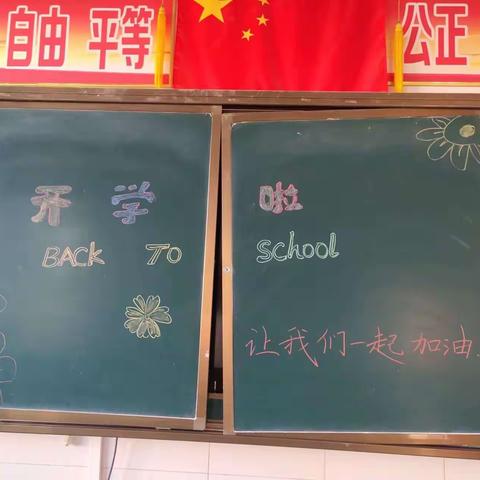 自由 平等 公正
开学啦
BACK TO School
让我们一起加油